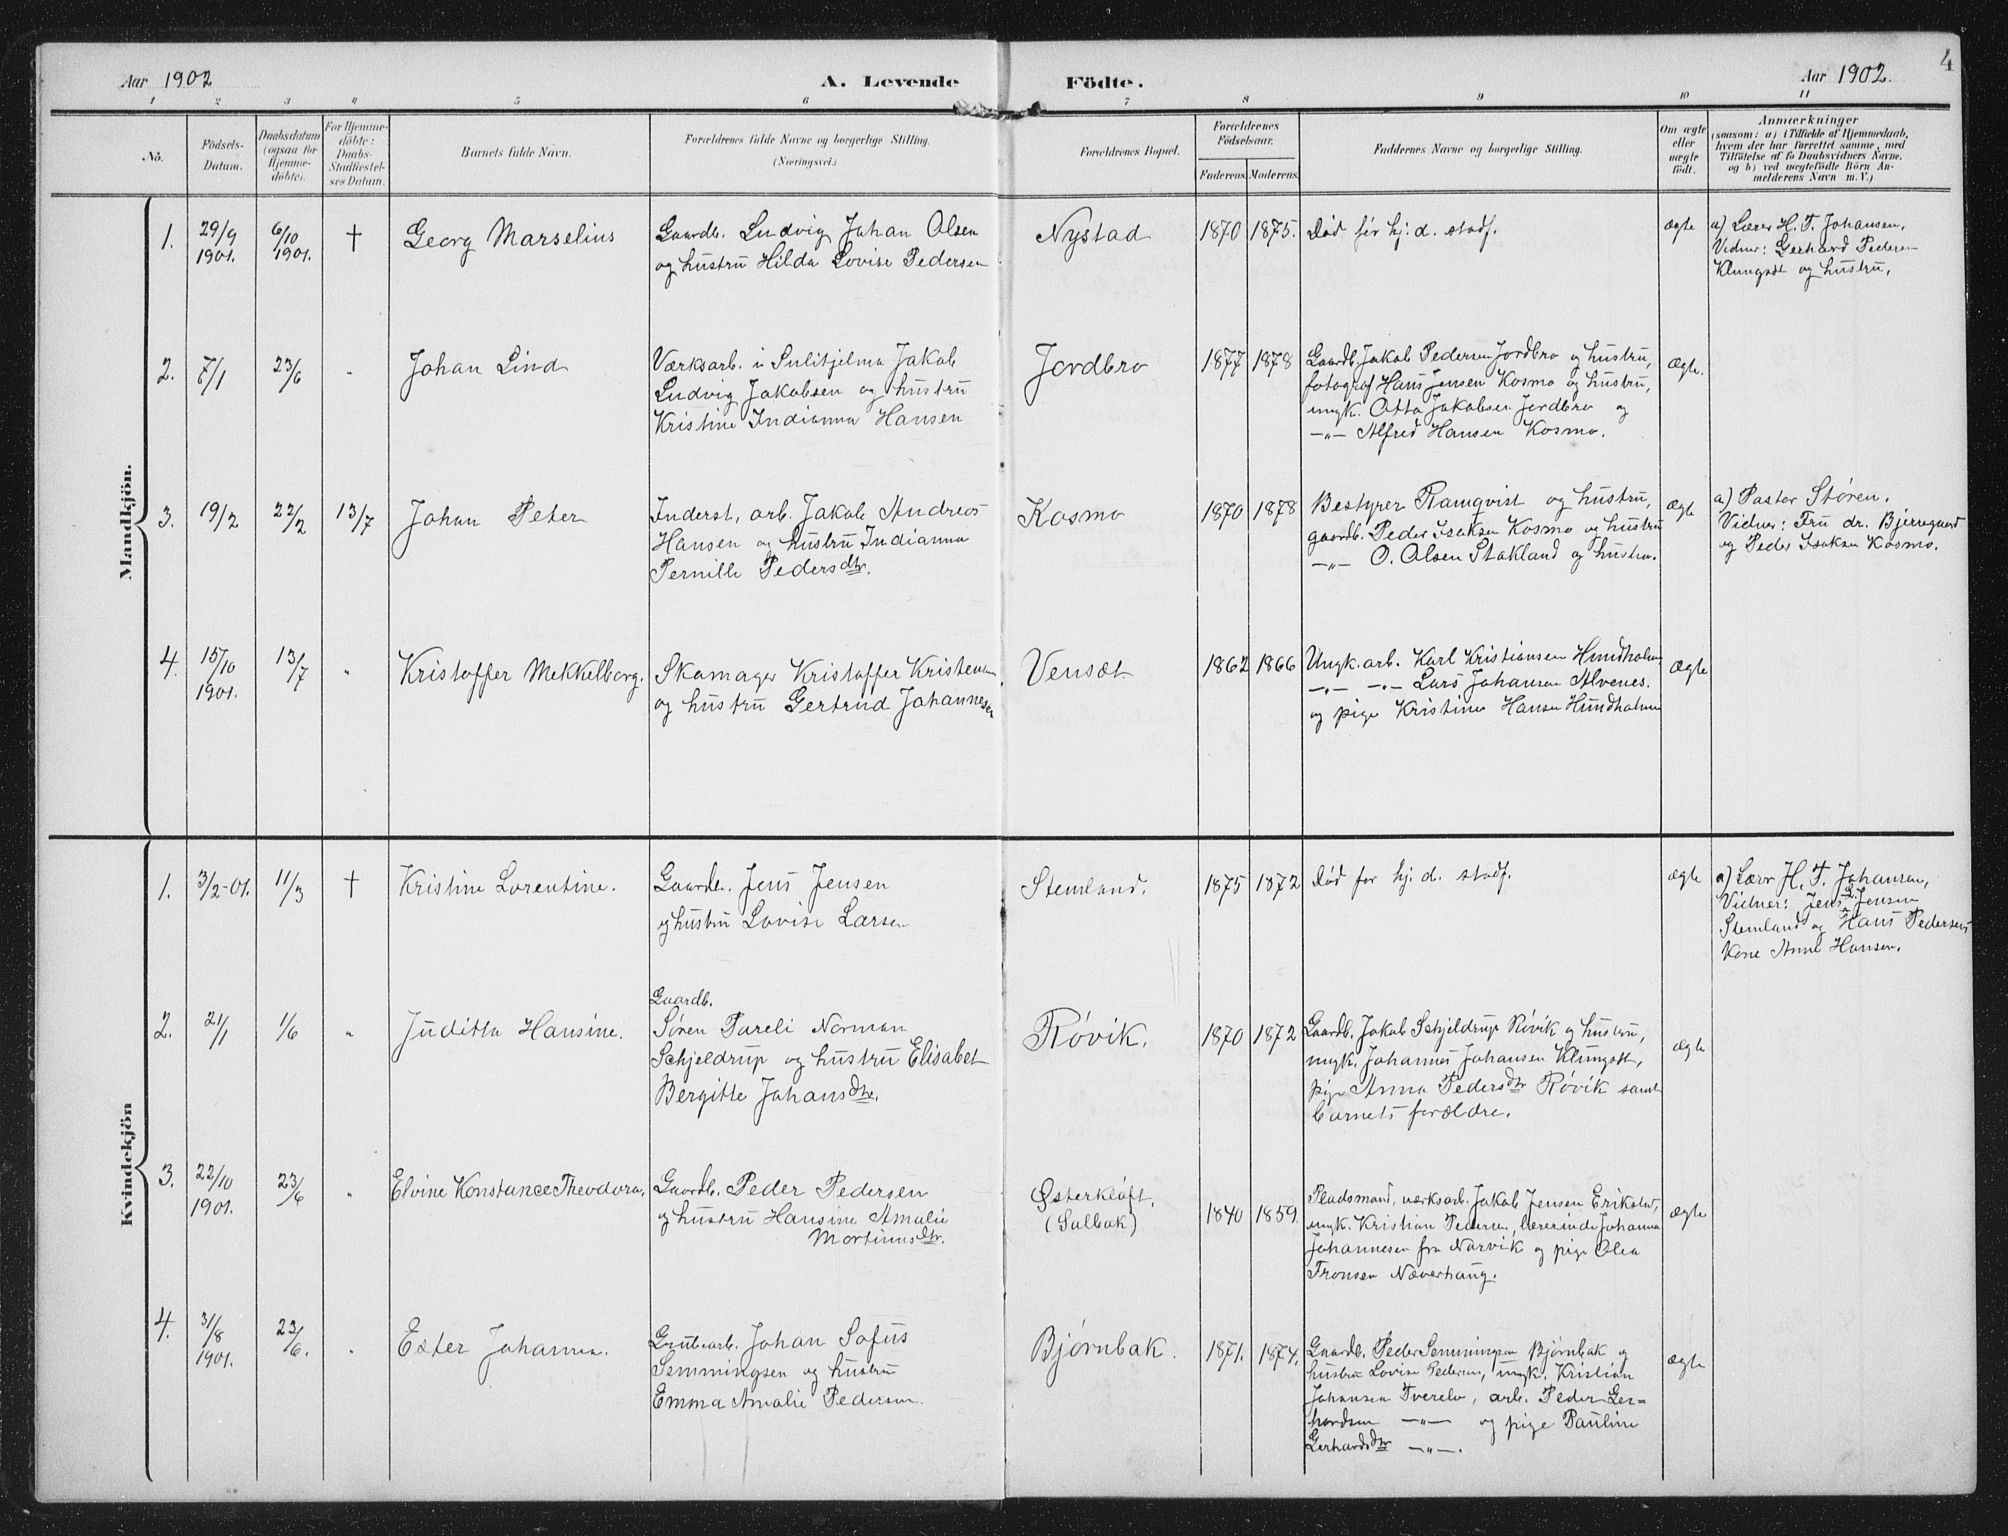 4
Aar 1902
A. Levende Födte.
Aar 1902.
1 2 3 4 5 6 7 8 9 10 11
No.
Födsels-
Datum.
Daabsdatum
(ogsaa for
Hjemme-
döbte).
For Hjemme-
döbte:
Daabs-
Stadfæstel-
ses Datum.
Barnets fulde Navn.
Forældrenes fulde Navne og borgerlige Stilling.
(Næringsvei.)
Forældrenes Bopæl.
Forældrenes
Födselsaar.
Faderens. Moderens.
Faddernes Navne og borgerlige Stilling.
Om ægte
eller
uægte
födt.
Anmærkninger
(saasom: a) i Tilfælde af Hjemmedaab,
hvem der har forrettet samme, med
Tilföielse af to Daabsvidners Navne,
og b) ved uægtefödte Börn An-
melderens Navn m. V.)
Mandkjön.
1.
29/9
1901.
6/10
1901.
†
Georg Marselius
Gaardb. Ludvig Johan Olsen
og hustru Hilda Lovise Pedersen
Nystad
1870 1875.
Död för hj. d. stadf.
ægte
a) Lærer H. T. Johansen.
Vidner: Gerhard Pedersen
Klungset og hustru.
2.
7/1
23/6
"
Johan Lind
Værksarb. i Sulitjelma Jakob
Ludvig Jakobsen og hustru
Kristine Indianna Hansen
Jordbro
1877 1878
Gaardb. Jakob Pedersen Jordbro og hustru,
fotograf Hans Jensen Kosmo og hustru,
ungk. Otto Jakobsen Jordbro og
—"— Alfred Hansen Kosmo.
Ægte.
3.
19/2
22/2
13/7
Johan Peter
Inderst, arb. Jakob Andreas
Hansen og hustru Indianna
Pernille Pedersdtr.
Kosmo
1870 1878
Bestyrer Ramqvist og hustru,
gaardb. Peder Isaksen Kosmo og hustru
—"— O. Olsen Stokland og hustru.
Ægte
a) Pastor Støren.
Vidner: Fru dr. Bjerregaard
og Peder Isaksen Kosmo.
4.
15/10
1901.
13/7
"
Kristoffer Mekkelborg.
Skomager Kristoffer Kristensen
og hustru Gertrud Johannesen
Vensæt
1862 1866
Ungk. arb. Karl Kristiansen Hundholmen
—"— —"— Lars Johansen Alvenes.
og pige Kristine Hansen Hundholmen
Ægte
Kvindekjön
1.
3/2-01.
11/3
†
Kristine Lorentine.
Gaardb. Jens Jensen
og hustru Lovise Larsen
Stemland.
1875 1872
Död for hj. d. stadf.
ægte
a) Lærer H. T. Johansen,
Vidner: Jens L. Jensen
Stemland og Hans Pedersens
Kone Anne Hansen.
2.
21/1
1/6
"
Juditta Hansine.
Gaardb.
Søren Pareli Norman
Schjeldrup og hustru Elisabet
Bergitte Johansdtr.
Røvik.
1870 1872
Gaardb. Jakob Schjeldrup Røvik og hustru,
ungk. Johannes Johansen Klungset,
pige Anna Pedersdtr Røvik samt
barnets forældre.
ægte
3.
22/10
1901.
23/6
"
Elvine Konstance Theodora.
Gaardb. Peder Pedersen
og hustru Hansine Amalie
Mortinusdtr.
Østerkløft.
(Sulbak)
1840 1859.
Pladsmand, værksarb. Jakob Jensen
ungk. Kristian Pedersen, lærerinde Johanna
Johannesen fra Narvik og pige Olea
Fronsen Næverhaug.
ægte
4.
31/8
1901.
23/6.
"
Ester Johanna.
Grubearb. Johan Sofus
Semmingsen og hustru
Emma Amalie Pedersen.
Bjørnbak.
1871. 1874.
Gaardb. Peder Semmingsen Bjørnbak og
hustru Lovise Pedersen, ungk. Kristian
Johansen Tverelv, arb. Peder Ger=
hardsen —"— og pige Pauline
Gerhardsdtr —"—.
ægte